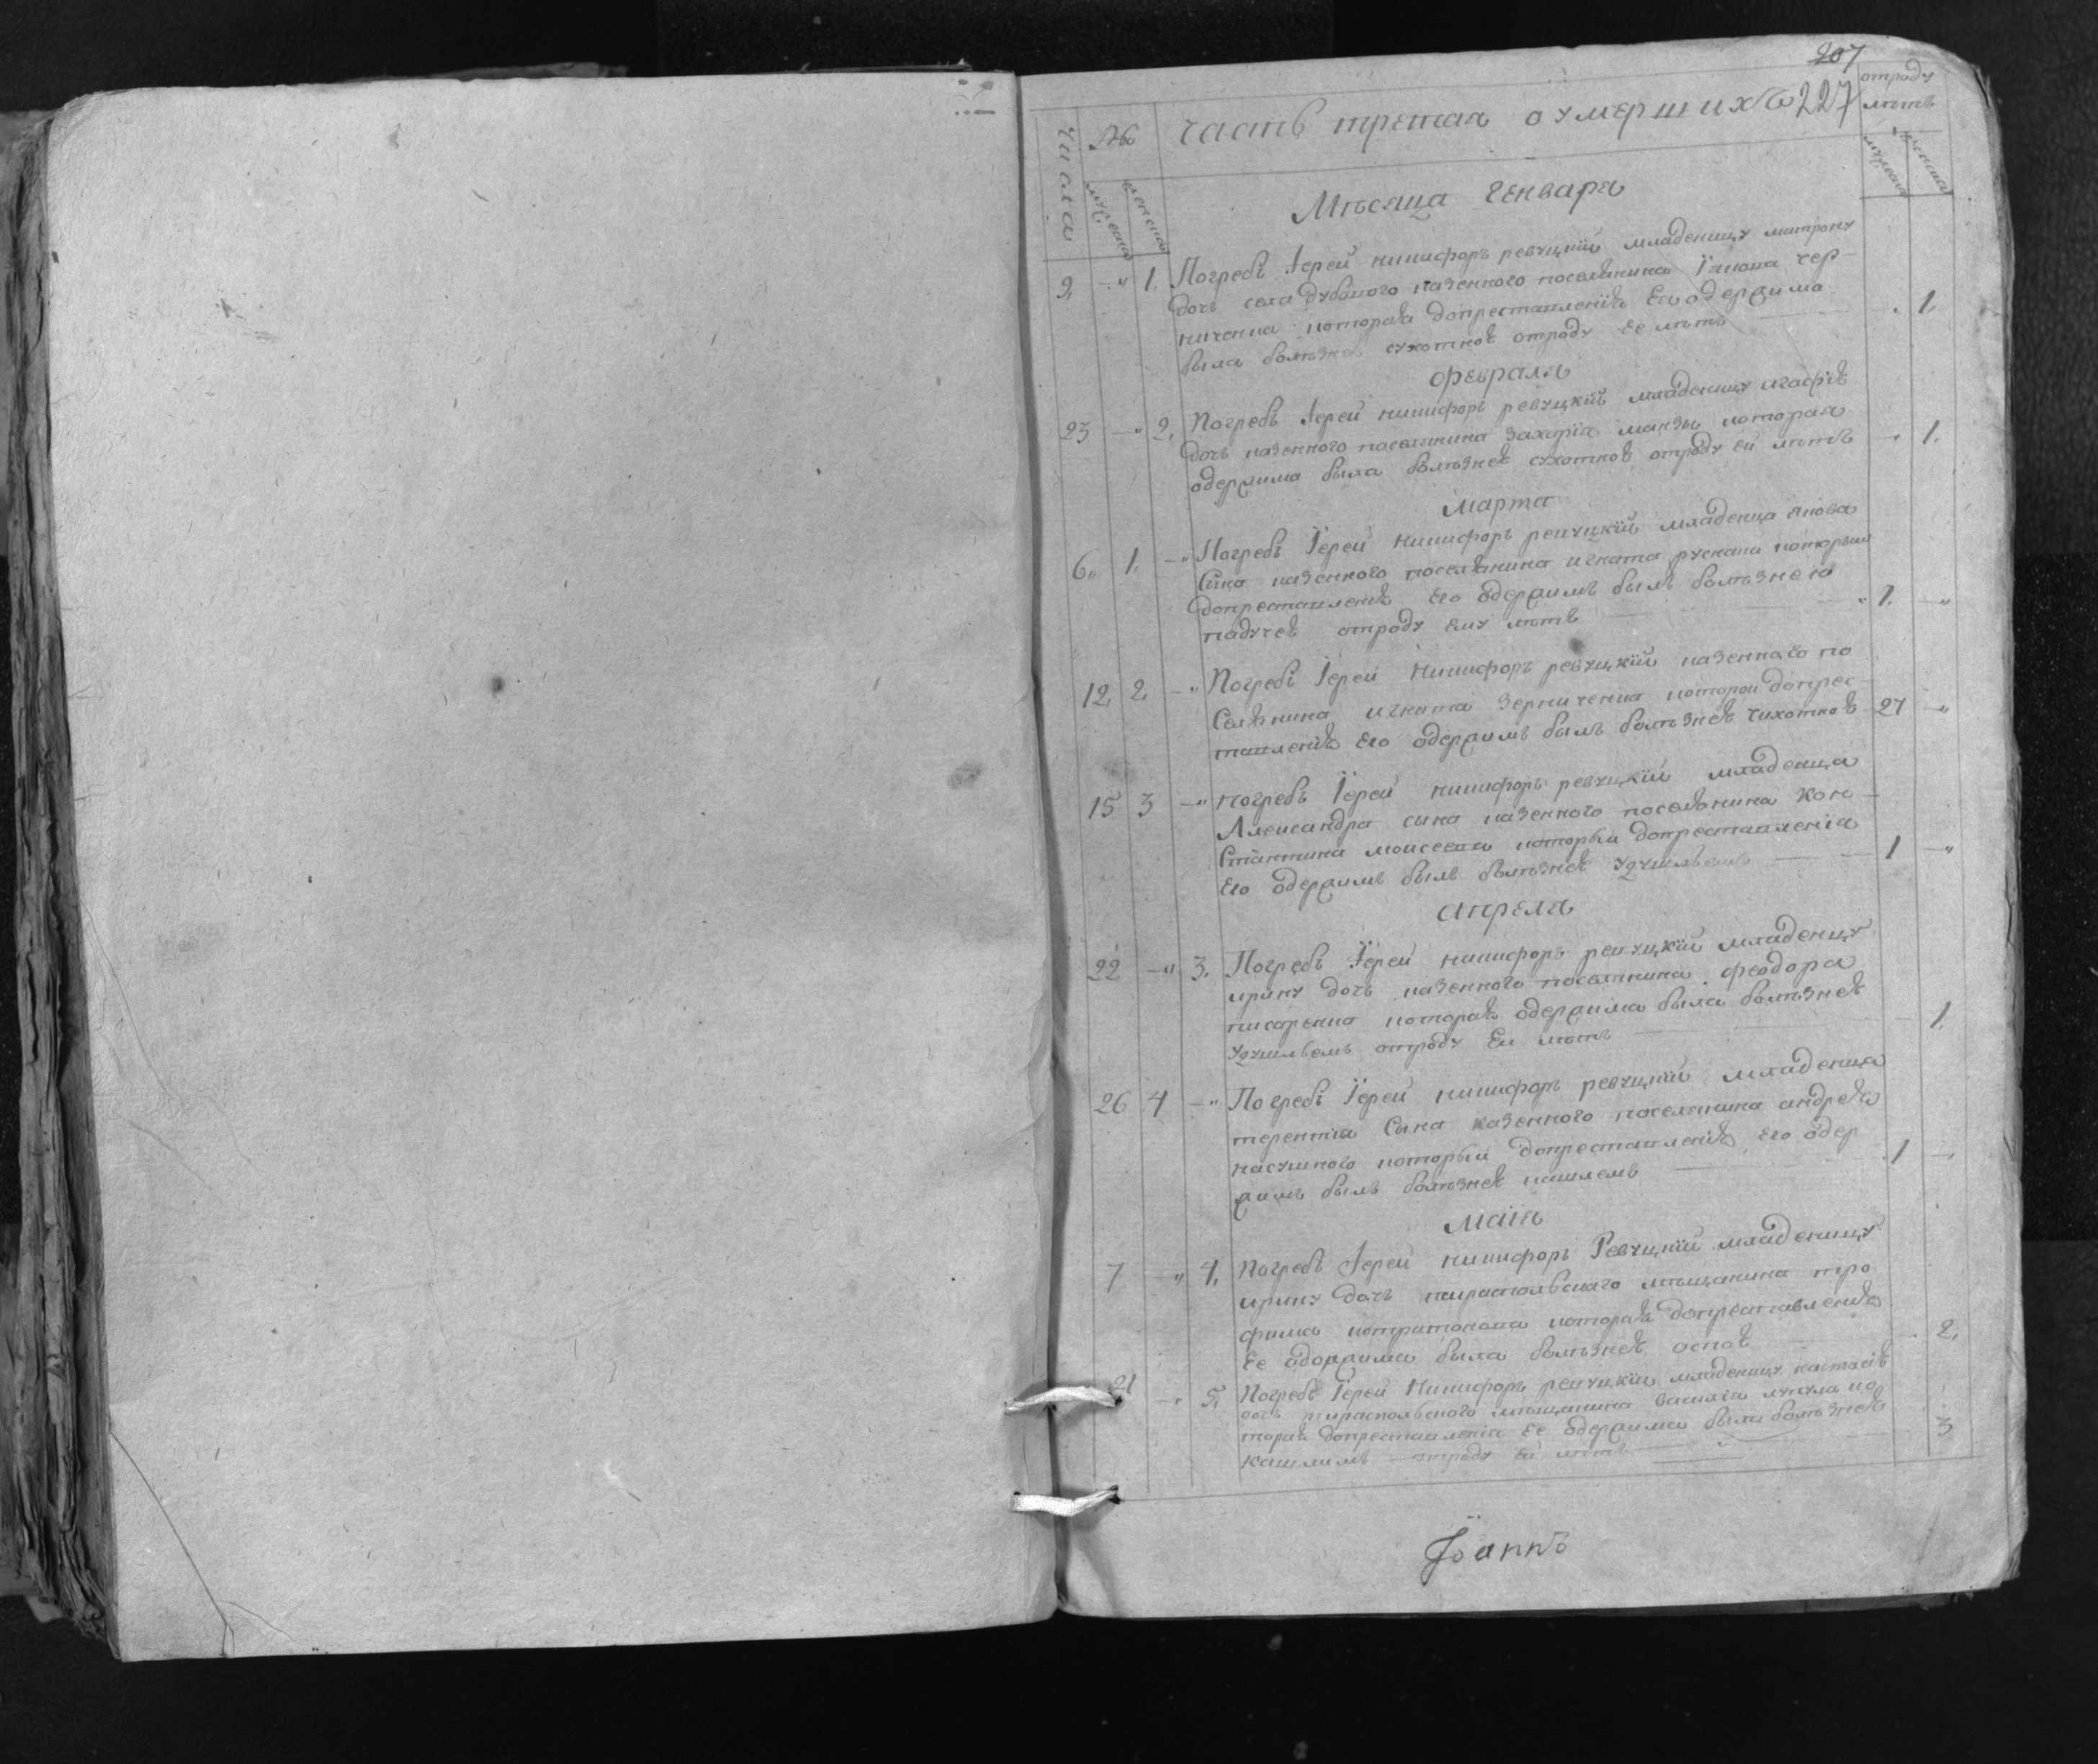 207
Числа № Часть третая о умершихъ 227 отроду лѣтъ
мужеска женска мужеска женска
Мѣсяца Генваря
9, -" 1. Погребъ Іерей никифоръ ревуцкій младеницу матрону
дочь села дубового казенного поселянина Іякова чер-
ниченка которая допреставленія Ея одержима
была болѣзнею сухоткою отроду ее лѣтъ 1.
февраля
23 -" 2, Погребъ Іерей никифоръ ревуцкій младеницу агафію
дочь казенного поселянина захарія которая
одержима была болѣзнею сухоткою отроду ей лѣтъ 1.
марта
6" 1. -" Погребъ Іерей никифоръ ревуцкій младенца якова
Сына казенного поселянина игната которыи
допреставленія его одержимъ былъ болѣзнею
падучею отроду ему лѣтъ 1. -"
12, 2, -" Погребъ Іерей Никифоръ ревуцкій казенного по
Селянина игната которой допрес-
тавленія его одержимъ былъ болѣзнею чихоткою 27 -"
15 3 -" погребъ Іерей никифоръ ревуцкій младенца
Александра сына казенного поселянина Кон-
Стантина моисеева которыи допреставленія
Его одержимъ былъ болѣзнею удушьемъ 1 -"
апреля
22 -" 3. Погребъ Іерей никифоръ ревуцкій младеницу
ирину дочь казенного поселянина феодора
писаренка которая одержима была болѣзнею
удушьемъ отроду Еи лѣтъ 1.
26 4 -" Погребъ Іерей никифоръ ревуцкій младенца
терентія Сына казенного поселянина андрея
которыи допреставленія его одер
жимъ былъ болѣзнею кашлемъ 1 -
маія
7 " 4, Погребъ Іерей никифоръ Ревуцкій младеницу
ирину дочь тираспольского мѣщанина тро
фима которая допреставленія
Ее одержима была болѣзнею оспою 2,
21 -" 5, Погребъ Іерей Никифоръ ревуцкій младеницу настасію
дочь тираспольского мѣщанина василія ко
торая допреставленія ее одержима была болѣзнею
кашлимъ отроду ей лѣтъ 3
Іоаннъ